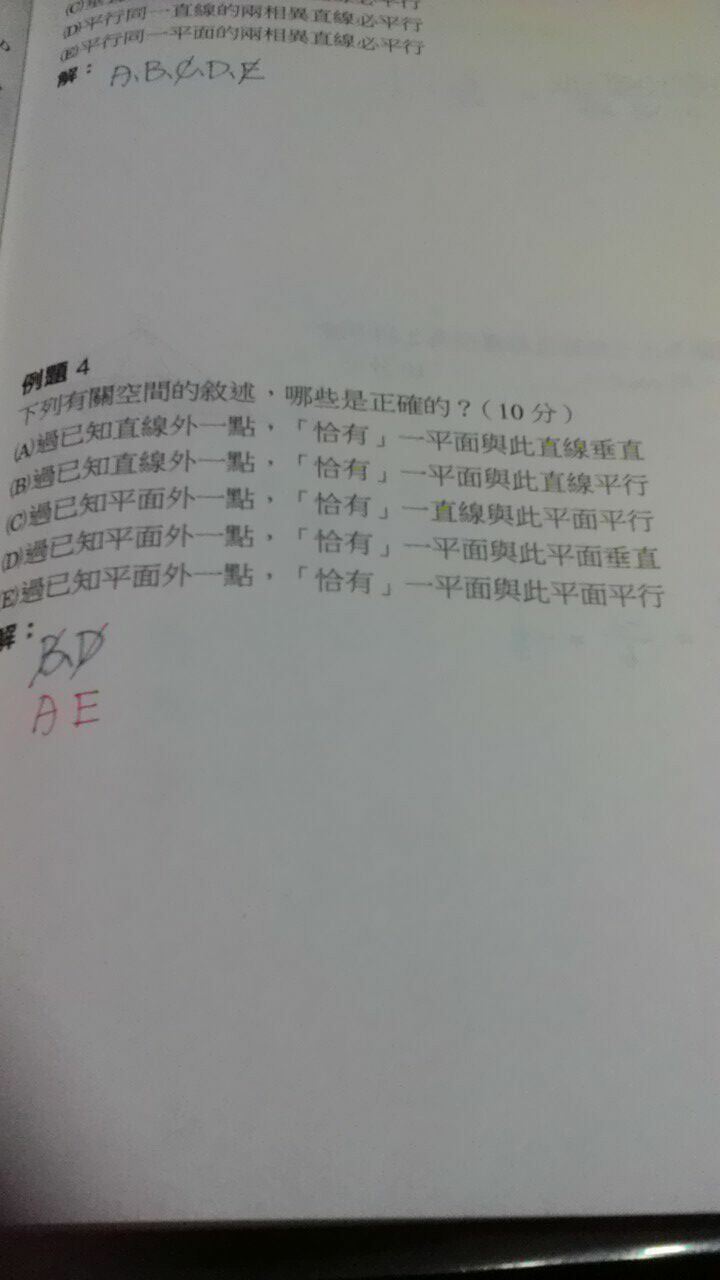 (D)平行同一直線的兩相異直線必平行
(E)平行同一平面的兩相異直線必平行
解：A、B、C、D、E
例題 4
下列有關空間的敘述，哪些是正確的？（10 分）
(A)過已知直線外一點，「恰有」一平面與此直線垂直
(B)過已知直線外一點，「恰有」一平面與此直線平行
(C)過已知平面外一點，「恰有」一直線與此平面平行
(D)過已知平面外一點，「恰有」一平面與此平面垂直
(E)過已知平面外一點，「恰有」一平面與此平面平行
解：
B、D
A E